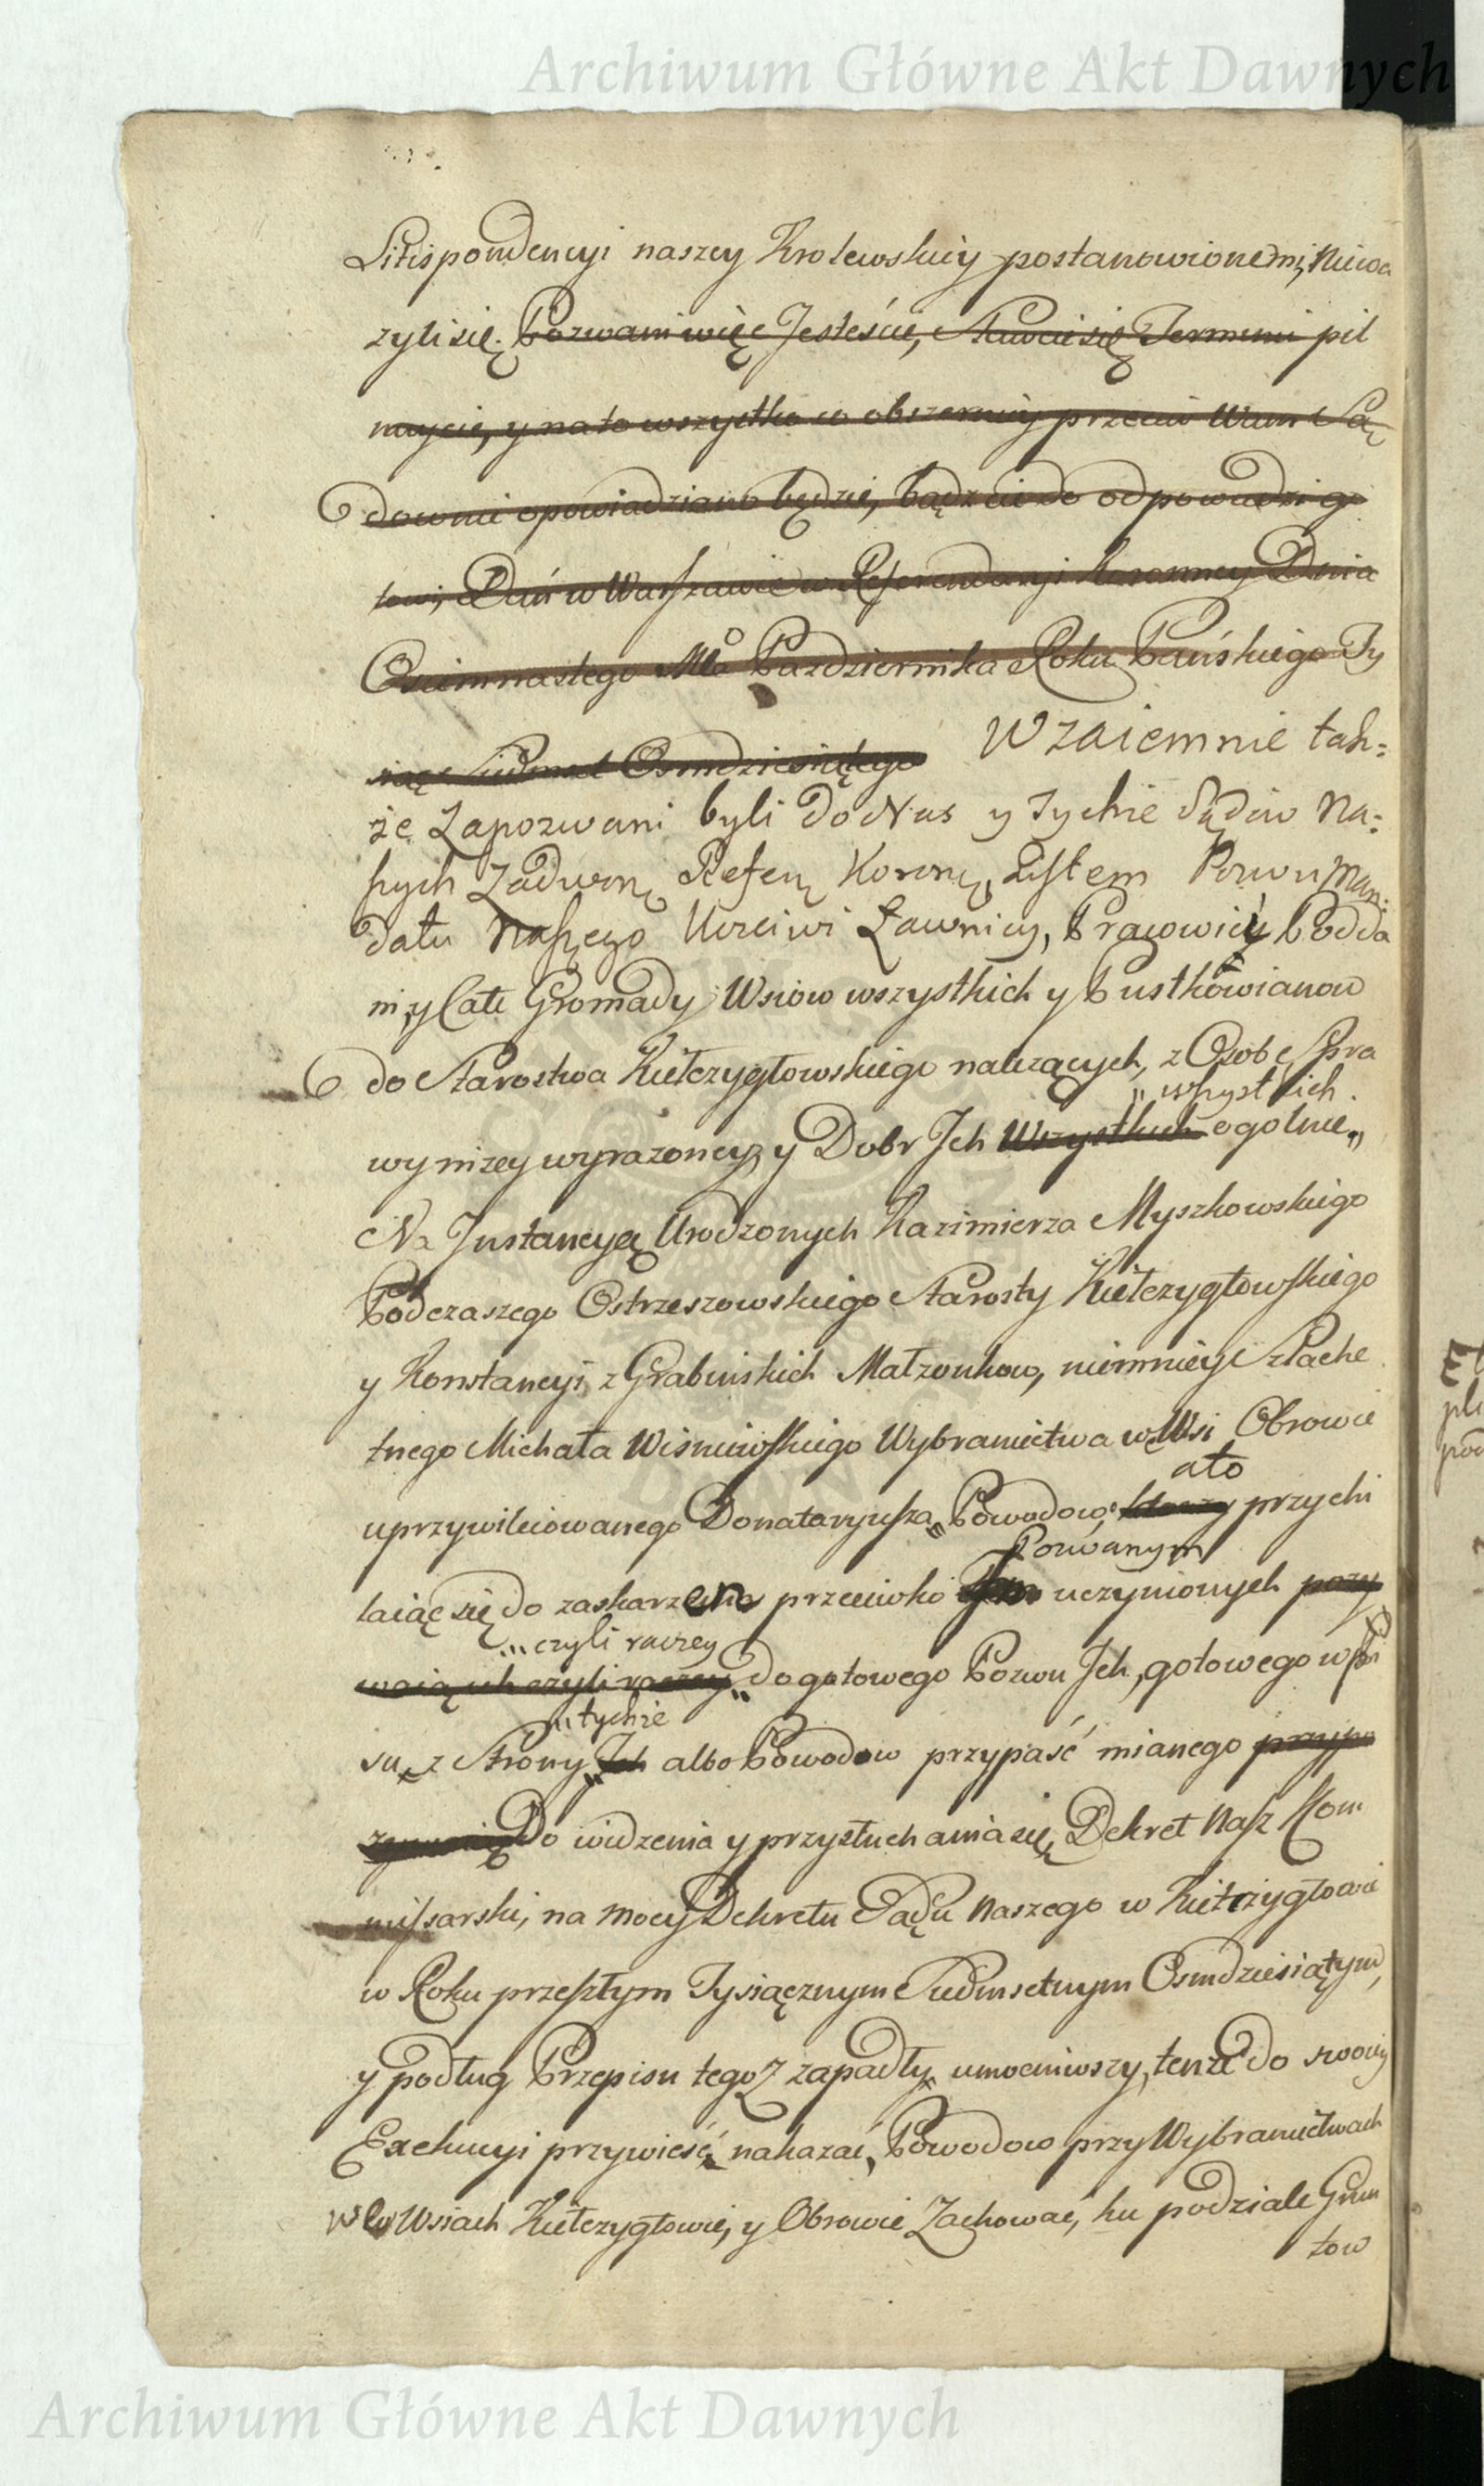 Archiwum Główne Akt Dawnych
Litispendencyi naszey Krolewskiey postanowionemi, niewa
zyli się. Pozwani więc Jesteście, Stawcie się Terminu pil
nuycie, y na to wszystko co obszerniey przeciw Wam Są
downie opowiadziano będzie, bądźcie do odpowiedzi go
towi, Dań w Warszawie w Referendaryi Koronney Dnia
Osiemnastego Mca Pazdziernika Roku Pańskiego Ty
siąc Siedmset Osmdziesiątego Wzaiemnie tak=
że Zapozwani byli do Nas y Tychże Sądow Na=
szych Zadwor. Refer. Koron. Listem Pozwu Man=
datu Naszego Uczciwi Ławnicy, Pracowici Podda
ni, y Całe Gromady Wsiow wszystkich y Pustkowianow
do Starostwa Kiełczygłowskiego nalezących, z Osob, Spra
wszystkich
wy nizey wyrazoney, y Dobr Ich Wszystkich ogolnie
Na Instancyą Urodzonych Kazimierza Myszkowskiego
Podczaszego Ostrzeszowskiego Starosty Kiełczygłowskiego
y Konstancyi z Grabinskich Małzonkow, niemniey Szlache
tnego Michała Wisniewskiego Wybraniectwa we Wsi Obrowie
ato
uprzywileiowanego Donataryusza Powodow, ktorzy przychi
Pozwanym
laiąc się do zaskarzen przeciwko uczynionych pozy
czyli raczey
waiących czyli raczey do gotowego Pozwu Ich, gotowego wpi
tychże
su, z Strony Ich albo Powodow przypaść mianego przypo
Do widzenia y przysłuchania się, Dekret Nasz Kom
missarski, na mocy Dekretu Sądu Naszego w Kiełczygłowie
w Roku przeszłym Tysiącznym Siedmsetnym Osmdziesiątym,
y podług Przepisu tegoż zapadły umocniwszy, tenże do swoiey
Exekucyi przywieść, nakazać, Powodow przy Wybraniectwach
we Wsiach Kiełczygłowie, y Obrowie Zachować, ku podziale Grun
tow
Archiwum Główne Akt Dawnych